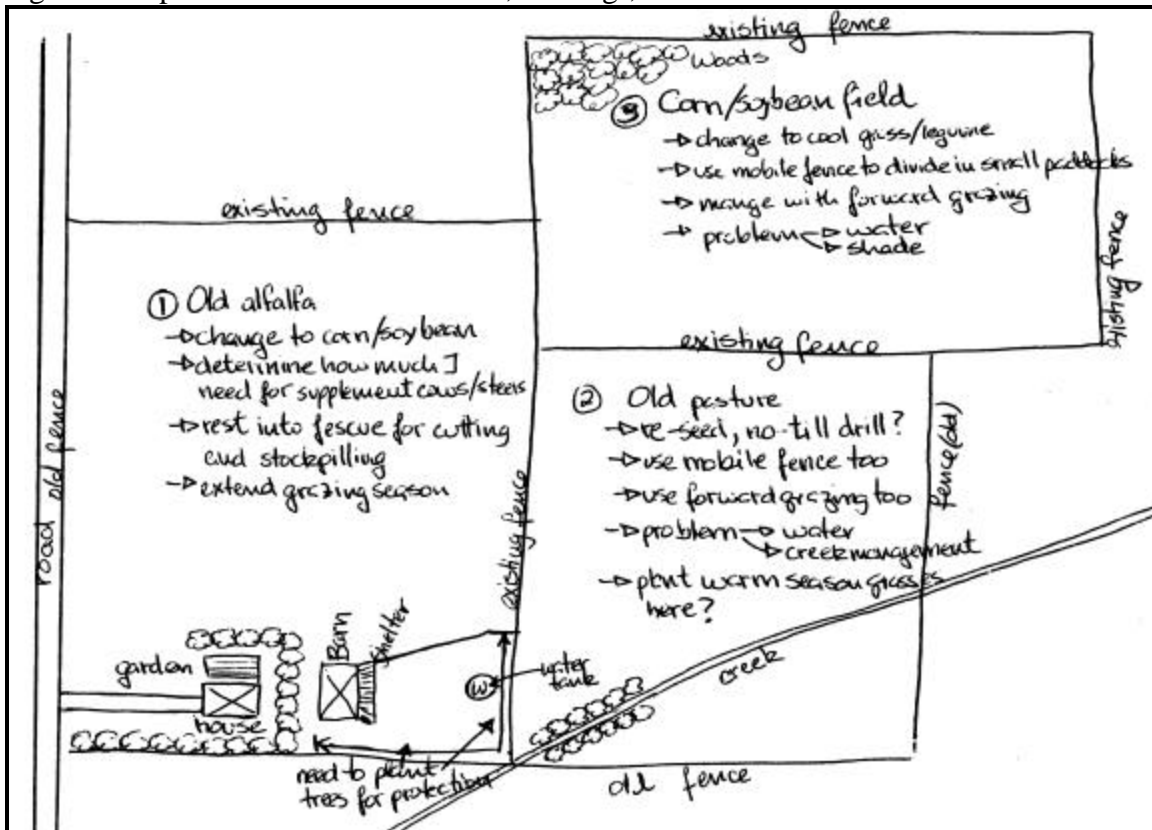 existing fence
Woods
③ Corn/soybean field
→ change to cool grass/legume
→ use mobile fence to divide in small paddocks
→ mange with forward grazing
→ problem → water
→ shade
existing fence
existing fence
existing fence
① Old alfalfa
→ change to corn/soybean
→ determine how much I
need for supplement cows/steers
→ rest into fescue for cutting
and stockpilling
→ extend grazing season
② Old pasture
→ re-seed, no-till drill?
→ use mobile fence too
→ use forward grazing too
→ problem → water
→ creek mangement
→ plant warm season grasses
here?
fence (old)
road
old fence
existing fence
Barn
Shelter
garden
house
W
water
tank
creek
need to plant
trees for protection
old fence